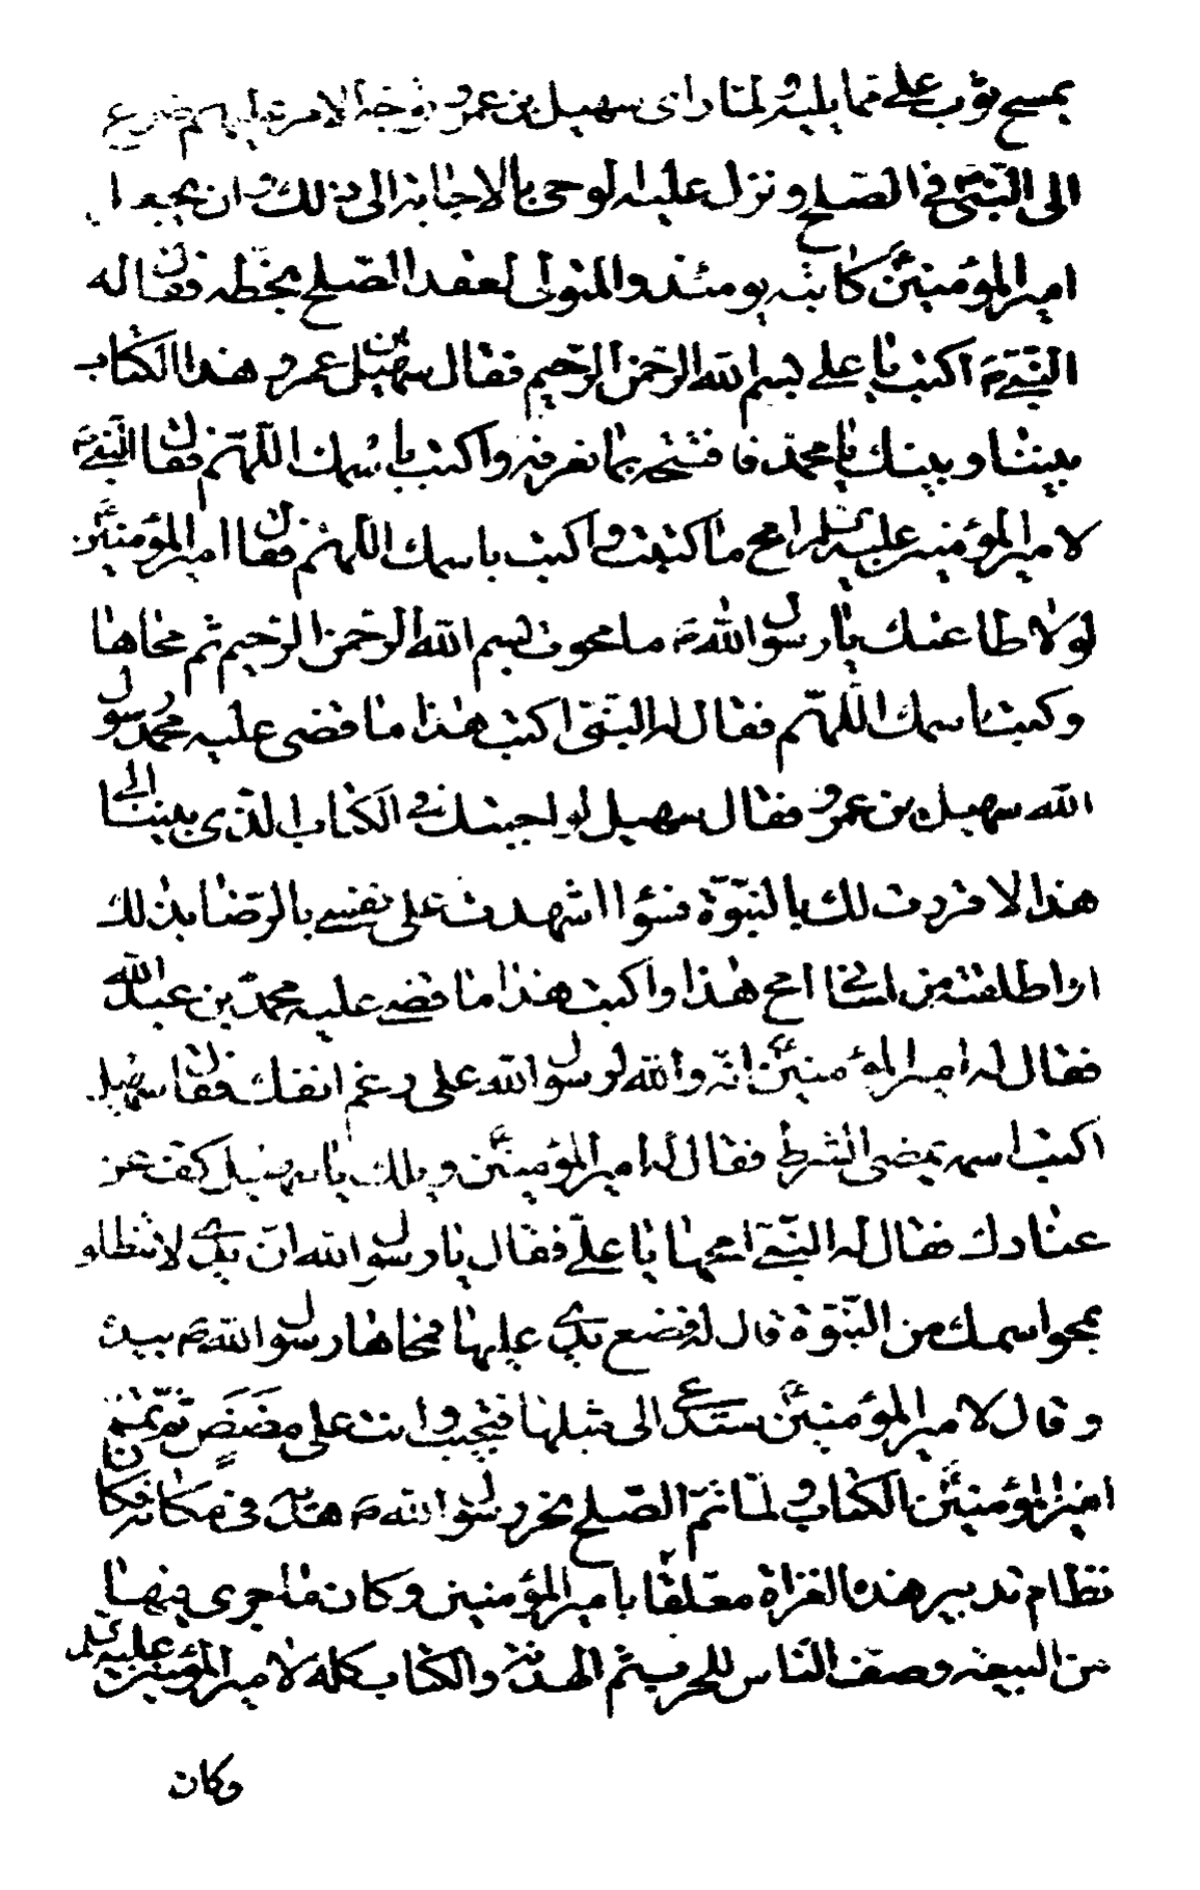 يمسح ثوب علي مما يليه ولما راى سهيل بن عمرو توجه الامر عليهم ضرع
الى النبى ص فى الصلح و نزل عليه الوحى بالاجابة الى ذلك و ان يجعل
امير المؤمنين ع كاتبه يومئذ والمتولى لعقد الصلح بخطه فقال له
النبى ص اكتب يا على بسم الله الرحمن الرحيم فقال سهيل بن عمرو هذا الكتاب
بيننا وبينك يا محمد فافتتحه بما نعرفه واكتب باسمك اللهم فقال النبى ص
لامير المؤمنين عليه السلم امح ما كتبت و اكتب باسمك اللهم فقال امير المؤمنين ع
لولا طاعتك يا رسول الله ص ما محوت بسم الله الرحمن الرحيم ثم محاها
وكتب باسمك اللهم فقال له النبى اكتب هذا ما قضى عليه محمد رسول
الله سهيل بن عمرو فقال سهيل لو اجبتك فى الكتاب الذى بيننا الى
هذا لاقررت لك بالنبوة فسواء اشهدت على نفسى بالرضا بذلك
او اطلقته من لسانى امح هذا واكتب هذا ما قضى عليه محمد بن عبد الله
فقال له امير المؤمنين ع انه والله لرسول الله على رغم انفك فقال سهيل
اكتب اسمه يمضى الشرط فقال له امير المؤمنين ع ويلك يا سهيل كف عن
عنادك فقال له النبى ص امحها يا على فقال يا رسول الله ان يدى لا تنطلق
بمحو اسمك من النبوة قال له فضع يدى عليها فمحاها رسول الله ص بيده
وقال لامير المؤمنين ع ستدعى الى مثلها فتجيب وانت على مضض ثم تمم
امير المؤمنين ع الكتاب و لما تم الصلح نحر رسول الله ص هديه فى مكانه فكان
نظام تدبير هذه الغزاة معلقا بامير المؤمنين وكان ما جرى فيها
من البيعة وصف الناس للحرب ثم الهدنة والكتاب كله لامير المؤمنين عليه السلم
وكان